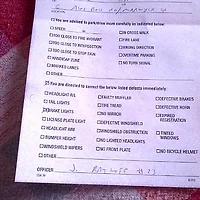 ☐ You are advised to park/drive more carefully as indicated below:
☐ SPEED ☐ IN CROSS WALK
☐ TOO CLOSE TO HYDRANT ☐ FIRE LANE
☐ TOO CLOSE TO INTERSECTION ☐ WRONG DIRECTION
☐ TOO CLOSE TO STOP SIGN ☐ OVERTIME PARKING
☐ HANDICAP ZONE ☐ NO TURN SIGNAL
☐ MARKED LANES
☐ OTHER
You are directed to correct the below listed defects immediately
☐ HEADLIGHT R/L ☐ FAULTY MUFFLER ☐ DEFECTIVE BRAKES
☐ TAIL LIGHTS ☐ TIRE TREAD ☐ DEFECTIVE HORN
BRAKE LIGHTS ☐ NO MIRROR ☐ EXPIRED REGISTRATION
☐ LICENSE PLATE LIGHT ☐ DEFECTIVE WINDSHIELD
☐ HEADLIGHT AIM ☐ WINDSHIELD OBSTRUCTION ☐ TINTED WINDOWS
☐ BUMPER HEIGHT ☐ NO LIGHTED HEADLIGHTS
☐ WINDSHIELD WIPERS ☐ NO FRONT PLATE ☐ NO BICYCLE HELMET
☐ OTHER
OFFICER J.